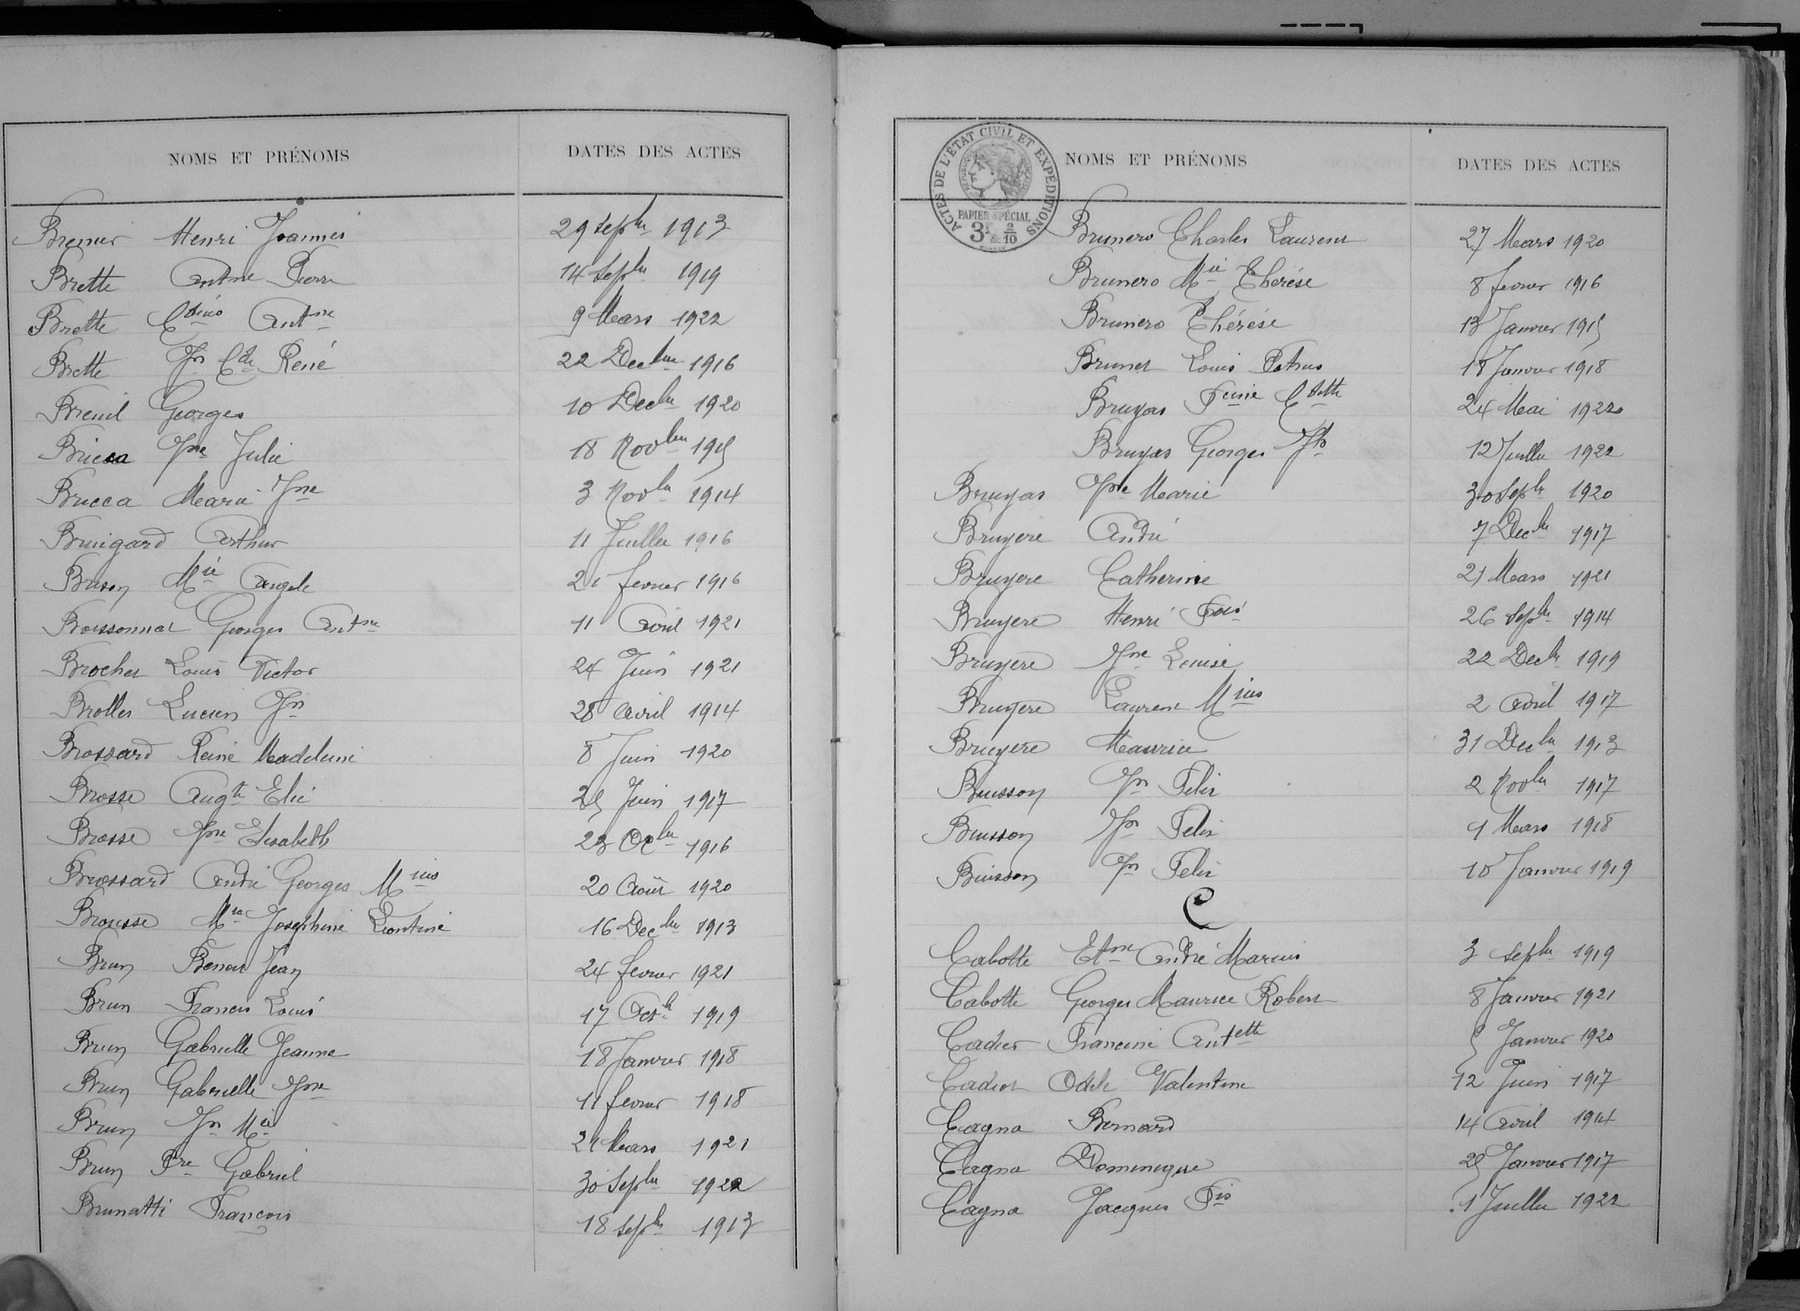 NOMS ET PRÉNOMS DATES DES ACTES
Bremier Henri Joannès 29 Septbre 1913
Brette Antne Pierre 14 Septbre 1919
Brette Cdius Antne 9 Mars 1922
Brette Jn Cde René 22 Decbre 1916
Breuil Georges 10 Decbre 1920
Bricca Jne Julie 18 Novbre 1915
Bricca Marie Jne 3 Novbre 1914
Bruigard Arthur 11 Juillet 1916
Brison Mie Angele 21 fevrier 1916
Boissonnat Georges Antne 11 Avril 1921
Brochet Louis Victor 24 Juin 1921
Brolles Lucien Jn 28 Avril 1914
Brossard Reine Madeleine 8 Juin 1920
Brosse Augte Elie 25 Juin 1917
Brosse Jne Elisabeth 23 Ocbre 1916
Brossard André Georges Mius 20 Août 1920
Brousse Mie Joséphine Léontine 16 Decbre 1913
Brun Benoit Jean 24 fevrier 1921
Brun Francis Louis 17 Octb 1919
Brun Gabrielle Jeanne 18 Janvier 1918
Brun Gabrielle Jne 11 fevrier 1918
Brun Jn Mie 21 Mars 1921
Brun Pre Gabriel 30 Septbre 1922
Brunatti François 18 Septb 1913
ACTES DE L'ÉTAT CIVIL ET EXPÉDITIONS
PAPIER SPÉCIAL
3F 2/10
NOMS ET PRÉNOMS DATES DES ACTES
Brunero Charles Laurent 27 Mars 1920
Brunero Mie Thérèse 8 fevrier 1916
Brunero Thérèse 13 Janvier 1915
Brunet Louis Petrus 18 Janvier 1918
Bruyas Feine Cdette 24 Mai 1922
Bruyas Georges Jh 12 Juillet 1922
Bruyas Jne Marie 30 Septb 1920
Bruyere André 7 Decbre 1917
Bruyere Catherine 21 Mars 1921
Bruyere Henri Fois 26 Septb 1914
Bruyere Jne Louise 22 Decb 1919
Bruyere Laurent Mius 2 Avril 1917
Bruyere Maurice 31 Decbre 1913
Buisson Jn Felix 2 Novbre 1917
Buisson Jn Felix 1 Mars 1918
Buisson Jn Felix 10 Janvier 1919
C
Cabotte Etne André Marcus 3 Septbre 1919
Cabotte Georges Maurice Robert 8 Janvier 1921
Cadier Francine Antette 5 Janvier 1920
Cadiot Odile Valentine 12 Juin 1917
Cagna Bernard 14 Avril 1914
Cagna Dominique 25 Janvier 1917
Cagna Jacques Fis 1 Juillet 1922